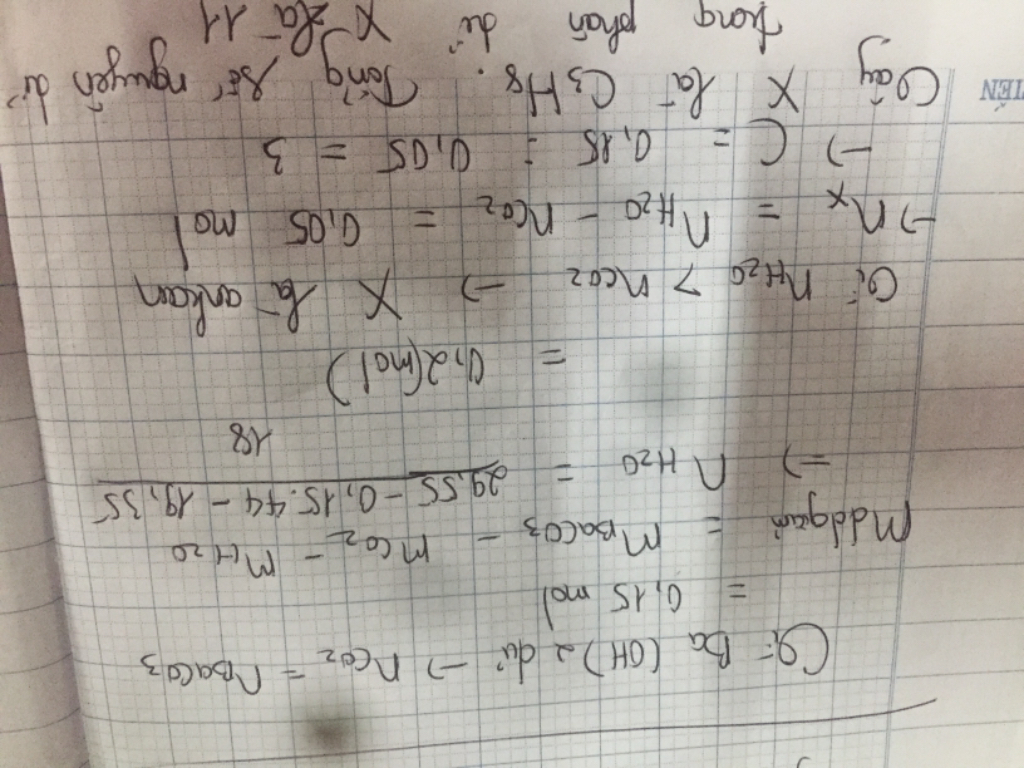 Vì Ba(OH)2 dư → nCO2 = nBaCO3
= 0,15 mol
mddgiảm = mBaCO3 - mCO2 - mH2O
=> nH2O = 29,55 - 0,15.44 - 19,35
18
= 0,2 (mol)
Vì nH2O > nCO2 → X là ankan
→ nX = nH2O - nCO2 = 0,05 mol
→ C = 0,15 : 0,05 = 3
Vậy X là C3H8. Tổng số nguyên tử
trong phân tử X là 11
TIÊN